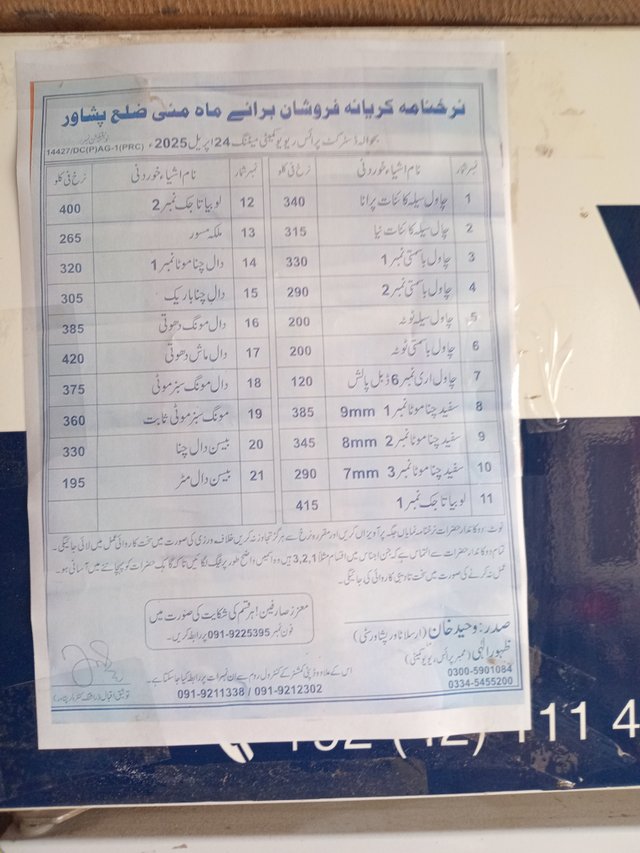 نرخنامہ کریانہ فروشان برائے ماہ مئی ضلع پشاور
بحوالہ ڈسٹرکٹ پرائس ریویو کمیٹی میٹنگ 24 اپریل 2025ء
14427/DC(P)AG-1(PRC)
نمبر شمار نام اشیاء خوردنی نرخ فی کلو نمبر شمار نام اشیاء خوردنی نرخ فی کلو
1 چاول سیلہ کائنات پرانا 340 12 لوبیا تاجک نمبر 2 400
2 چاول سیلہ کائنات نیا 315 13 ملکہ مسور 265
3 چاول باسمتی نمبر 1 330 14 دال چنا موٹا نمبر 1 320
4 چاول باسمتی نمبر 2 290 15 دال چنا باریک 305
5 چاول سیلہ ٹوٹہ 200 16 دال مونگ دھوتی 385
6 چاول باسمتی ٹوٹہ 200 17 دال ماش دھوتی 420
7 چاول اری نمبر 6 ڈبل پالش 120 18 دال مونگ سبز موٹی 375
8 سفید چنا موٹا نمبر 1 9mm 385 19 مونگ سبز موٹی ثابت 360
9 سفید چنا موٹا نمبر 2 8mm 345 20 بیسن دال چنا 330
10 سفید چنا موٹا نمبر 3 7mm 290 21 بیسن دال مٹر 195
11 لوبیا تاجک نمبر 1 415
نوٹ: دوکاندار حضرات نرخنامہ نمایاں جگہ پر آویزاں کریں اور مقررہ نرخ سے ہرگز تجاوز نہ کریں خلاف ورزی کی صورت میں سخت کاروائی عمل میں لائی جائیگی۔
تمام دوکاندار حضرات سے التماس ہے کہ جن اجناس میں اقسام مثلاً 3,2,1 ہیں وہ انہیں واضح طور پر ٹیگ لگائیں تاکہ گاہک حضرات کو پہچاننے میں آسانی ہو۔
عمل نہ کرنے کی صورت میں سخت تادیبی کاروائی کی جائیگی۔
معزز صارفین! ہر قسم کی شکایت کی صورت میں
فون نمبر 9225395-091 پر رابطہ کریں۔
صدر: وحید خان
ظہور الٰہی (ممبر پرائس ریویو کمیٹی)
0300-5901084
0334-5455200
اس کے علاوہ ڈپٹی کمشنر کے کنٹرول روم سے ان نمبرات پر رابطہ کیا جا سکتا ہے۔
091-9211338 / 091-9212302
111 4